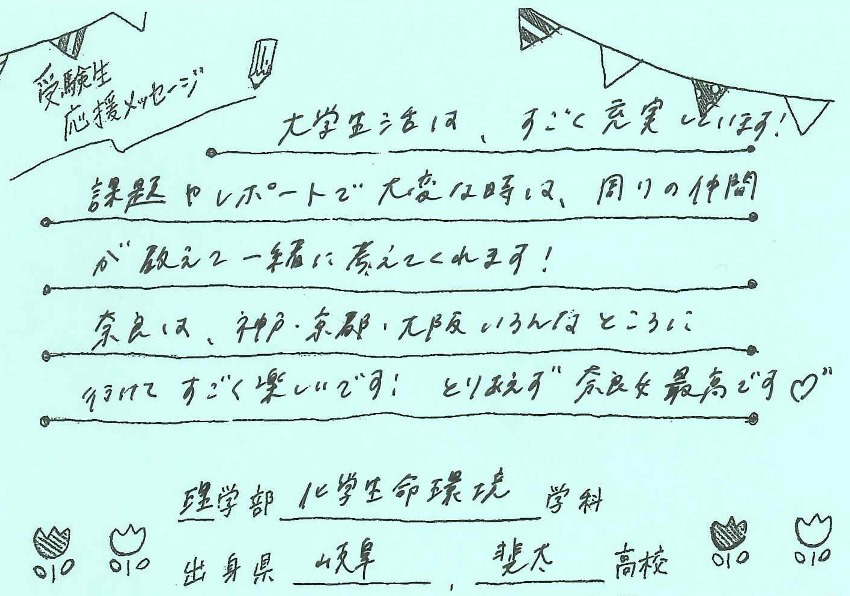 受験生
応援メッセージ
大学生活は、すごく充実しています!
課題やレポートで大変な時は、周りの仲間
が教えて一緒に考えてくれます!
奈良は、神戸・京都・大阪いろんなところに
行けてすごく楽しいです! とりあえず奈良女最高です♡"
理学部 化学生命環境 学科
出身県 岐阜 , 斐太 高校